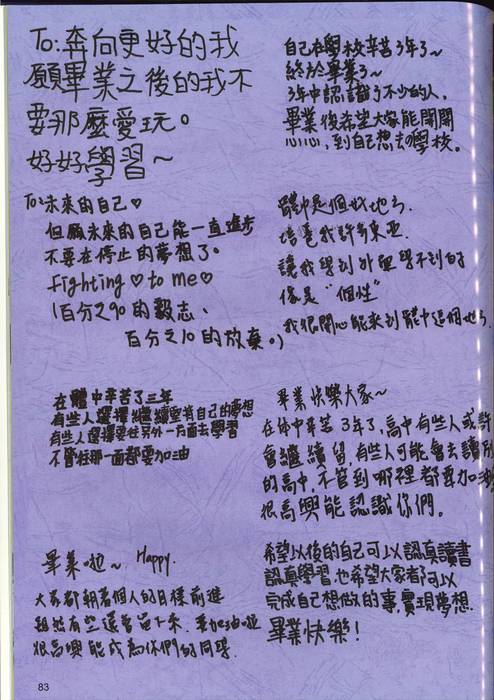 To:奔向更好的我
願畢業之後的我不
要那麼愛玩。
好好學習~
自己在學校辛苦3年了~
終於畢業了~
3年中認識了不少的人,
畢業後希望大家能開開
心心,到自己想去的學校。
To:未來的自己♡
但願未來的自己能一直進步
不要在停止的夢想了。
fighting♡to me♡
(百分之90的毅志、
百分之10的放棄。)
體中是個好地方.
培養我許多東西.
讓我學到外面學不到的
像是"個性"
我很開心能來到體中這個地方.
在體中辛苦了三年
有些人選擇繼續堅持自己的夢想
有些人選擇要往另外一方面去學習
不管往那一面都要加油
畢業快樂大家~
在体中辛苦3年了,高中有些人或許
會繼續留,有些人可能會去讀別
的高中,不管到哪裡都要加油
很高興能認識你們。
畢業啦~ Happy.
大家都朝著個人的目標前進
雖然有些還會留下來.要加油啦
很高興能成為你們的同學.
希望以後的自己可以認真讀書
認真學習也希望大家都可以
完成自己想做的事,實現夢想.
畢業快樂!
83